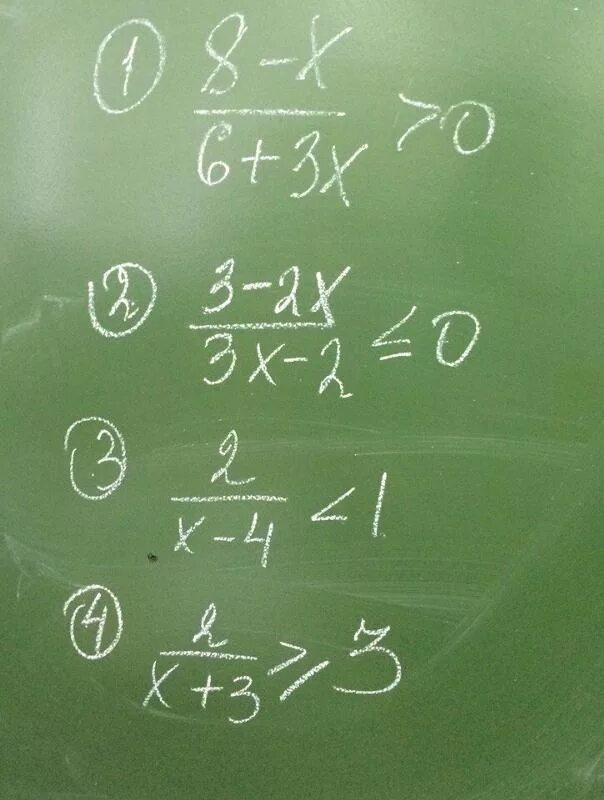 ① 8-x / 6+3x > 0
② 3-2x / 3x-2 ≤ 0
③ 2 / x-4 < 1
④ 2 / x+3 ≥ 3